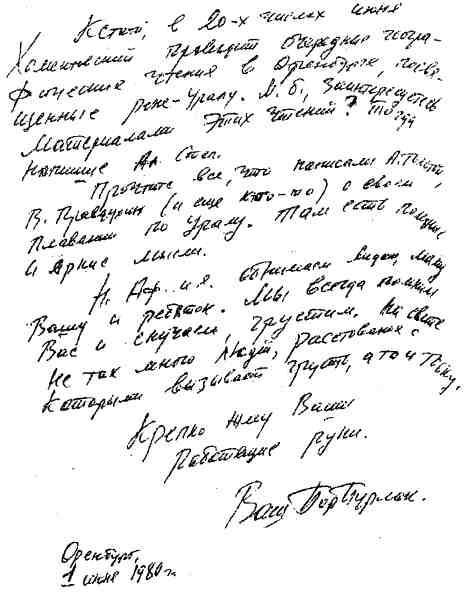 Кстати, в 20-х числах июня
Хоментовский проводит очередные геогра-
фические чтения в Оренбурге, посвя-
щенные реке Уралу. М. б., заинтересуетесь
материалами этих чтений? Тогда
напишите Ал. Степ.
Прочтите все, что написали А. Толстой,
В. Правдухин (и еще кто-то) о своем
плавании по Уралу. Там есть полезные
и яркие мысли.
Н. и я обнимаем маму
Вашу и ребяток. Мы всегда помним
Вас и скучаем, грустим. На свете
не так много людей, расставание с
которыми вызывает грусть, а то и тоску.
Крепко жму Ваши
работящие руки.
Ваш Бор Бурлак.
Оренбург,
1 июня 1980 г.